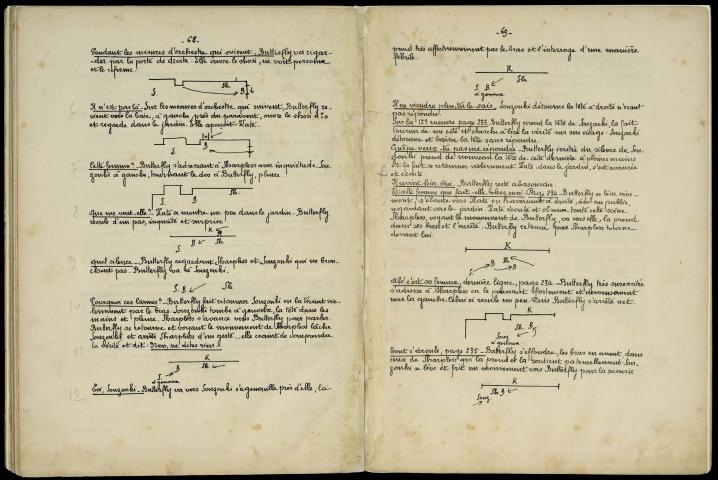 - 68 -
Pendant les mesures d'orchestre qui suivent, Butterfly va regar-
-der par la porte de droite. Elle ouvre le shosi, ne voit personne
et le referme.
S. Sh. B
Il n'est pas là. Sur les mesures d'orchestre qui suivent, Butterfly re-
vient vers la baie, à gauche, près du paravent, ouvre le shosi
et regarde dans le jardin. Elle aperçoit Kate.
S. B Sh.
Cette femme? Butterfly s'adressant à Sharpless avec inquiétude. Sou-
zouki à gauche, tournant le dos à Butterfly, pleure.
S. B Sh.
8
Que me veut-elle? Kate se montre un peu dans le jardin. Butterfly
recule d'un pas, inquiète et surprise
K
S. B Sh.
9
Quel silence. Butterfly regardant Sharpless et Souzouki qui ne bron-
chent pas. Butterfly va à Souzouki.
S. B Sh.
Pourquoi ces larmes? Butterfly fait retourner Souzouki en la tirant vio-
lemment par le bras. Souzouki tombe à genoux, la tête dans les
mains et pleure. Sharpless s'avance vers Butterfly pour parler.
Butterfly se retourne et voyant le mouvement de Sharpless lâche
Souzouki et arrête Sharpless d'un geste. elle craint de comprendre
la vérité et dit: Non, ne dites rien!
K
S. B Sh.
à genoux
12
Toi, Souzouki. Butterfly va vers Souzouki s'agenouille près d'elle, la
- 69 -
prend très affectueusement par le bras et l'interroge d'une manière
fébrile.
K
S. B Sh.
à genoux
Il ne viendra plus, tu le sais. Souzouki détourne la tête à droite n'osant
pas répondre.
Sur la 12e mesure page 233, Butterfly prend la tête de Souzouki, la fait
tourner de son côté et cherche à lire la vérité sur son visage. Souzouki
détourne et baisse la tête sans répondre.
Guêpe veux-tu pas me répondre. Butterfly irritée du silence de Sou-
zouki prend de nouveau la tête de cette dernière à pleines mains
et la fait se retourner violemment. Kate, dans le jardin, s'est avancée
et écoute.
Il vient hier, lui. Butterfly reste abasourdie.
Et cette femme que fait-elle chez moi. Page 234. Butterfly se lève vive-
ment, s'élance vers Kate en traversant à droite, dos au public,
regardant vers le jardin. Kate écoute et observe toute cette scène
Sharpless, voyant le mouvement de Butterfly va vers elle, la prend
dans ses bras et l'arrête. Butterfly retenue par Sharpless tourne
devant lui.
K
S. B Sh. B
Ah! c'est sa femme, dernière ligne, page 234. Butterfly très surexcitée
s'adresse à Sharpless en le poussant fortement et nerveusement
vers la gauche. Celui-ci recule un peu. Puis Butterfly s'arrête net.
K
S. Sh. B
à genoux
Tout s'écroule, page 235. Butterfly s'effondre, les bras en avant dans
ceux de Sharpless qui la prend et la soutient paternellement. Sou-
zouki se lève et fait un mouvement vers Butterfly pour la secourir
K
Souz. Sh. B